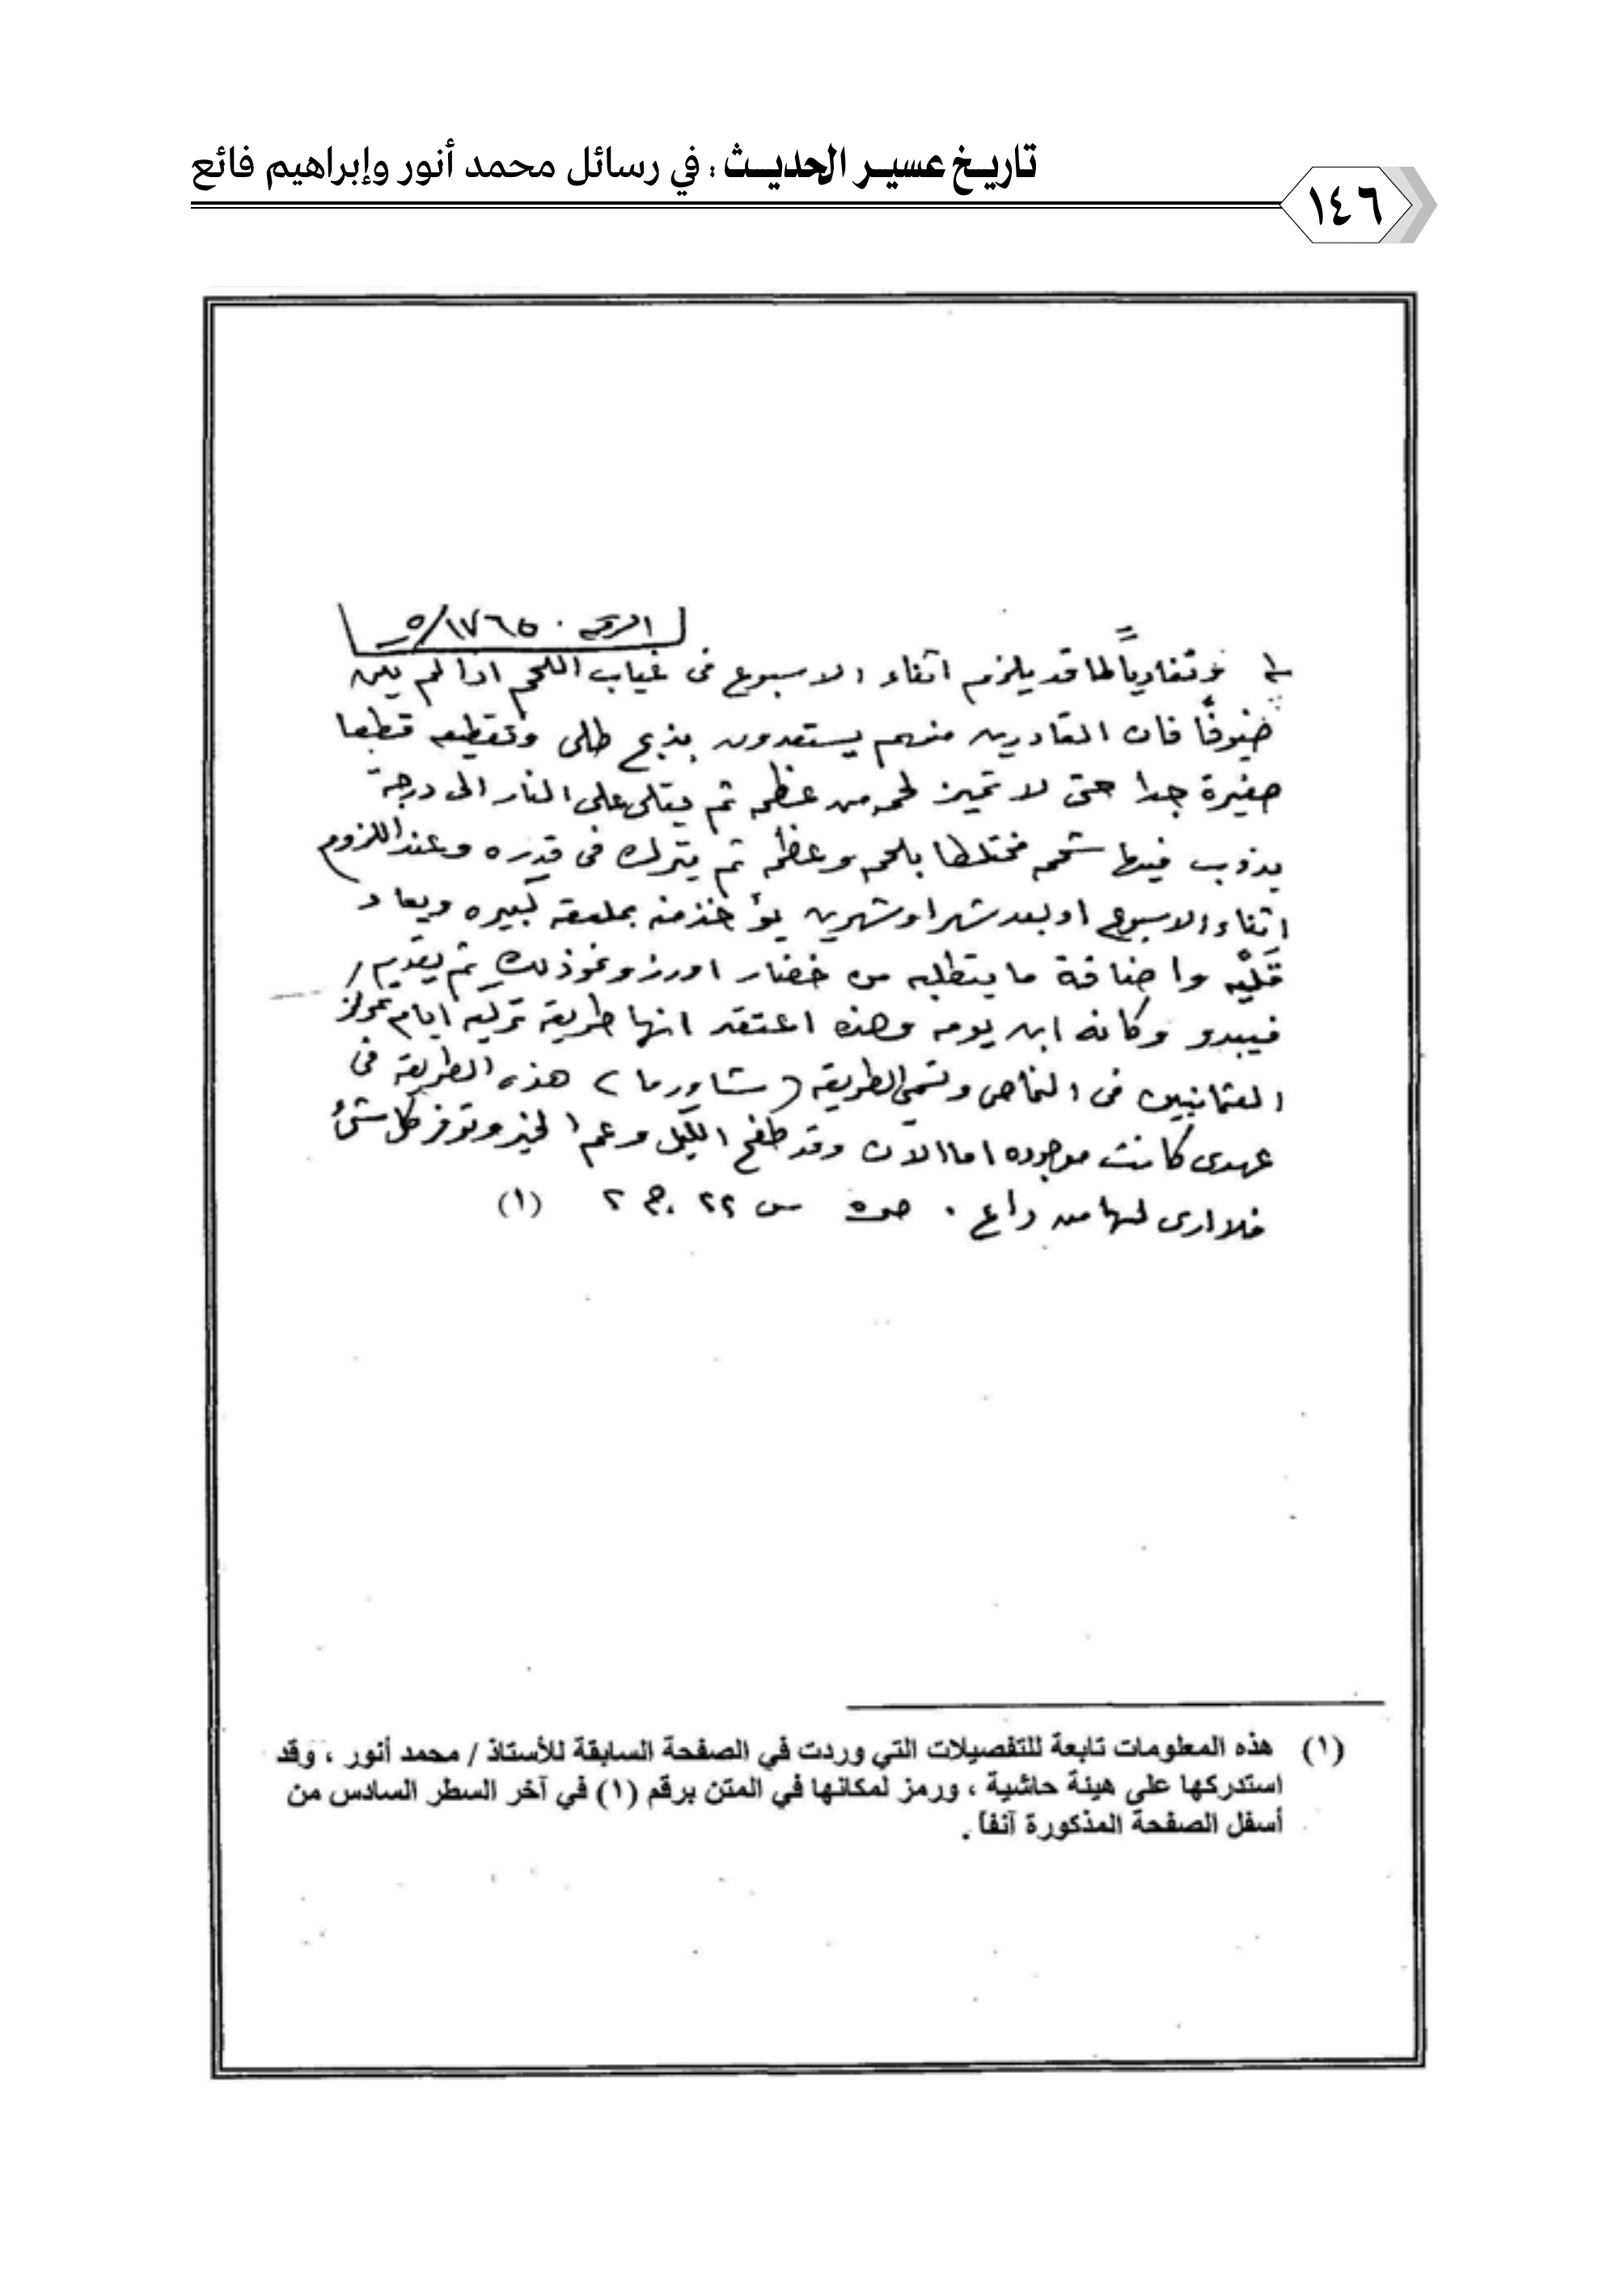 تاريخ عسير الحديث : في رسائل محمد أنور وإبراهيم فائع
١٤٦
الرقم . ١٧٦٥/ص٥
١ـ وتفادياً لما قد يلزم اثناء الاسبوع فى غياب اللحم اذا لم يكن
ضيوفًا فان القادرين منهم يستعدون بذبح طلى وتقطيعه قطعا
صغيرة جدا حتى لا تميز لحمه من عظمه ثم يقلى على النار الى درجة
يذوب فيها شحمه مختلطا بلحمه وعظمه ثم يترك فى قدره وعند اللزوم
اثناء الاسبوع او بعد شهر او شهرين يؤخذ منه بملعقه كبيره ويعاد
قَليْه واضافة ما يتطلبه من خضار اورز ونحو ذلك ثم يقدم
فيبدو وكانه ابن يومه وهذه اعتقد انها طريقة تركيه ايام تمركز
العثمانيين فى النماص وتسمى الطريقه ( شاورما ) هذه الطريقه فى
عهدى كانت موجوده اما الان وقد طفح الكيل وعم الخير وتوفر كل شئ
فلا ارى لها من داع . ص٥ س ٢٢ ج ٢ (١)
(١) هذه المعلومات تابعة للتفصيلات التي وردت في الصفحة السابقة للأستاذ / محمد أنور ، وقد
استدركها على هيئة حاشية ، ورمز لمكانها في المتن برقم (١) في آخر السطر السادس من
أسفل الصفحة المذكورة آنفاً .